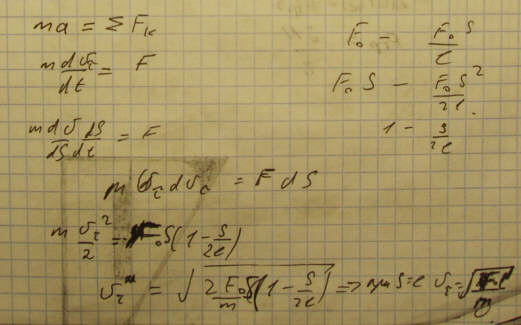 ma = ΣFₖ
m dv_τ/dt = F
m dv dS/dS dt = F
m v_τ dv_τ = F dS
m v_τ²/2 = F₀S(1 - S/2l)
v_τ = √(2F₀S/m (1 - S/2l)) => при S=l v_τ = √(F₀l/m)
F₀ - F₀S/l
F₀S - F₀S²/2l
1 - S/2l